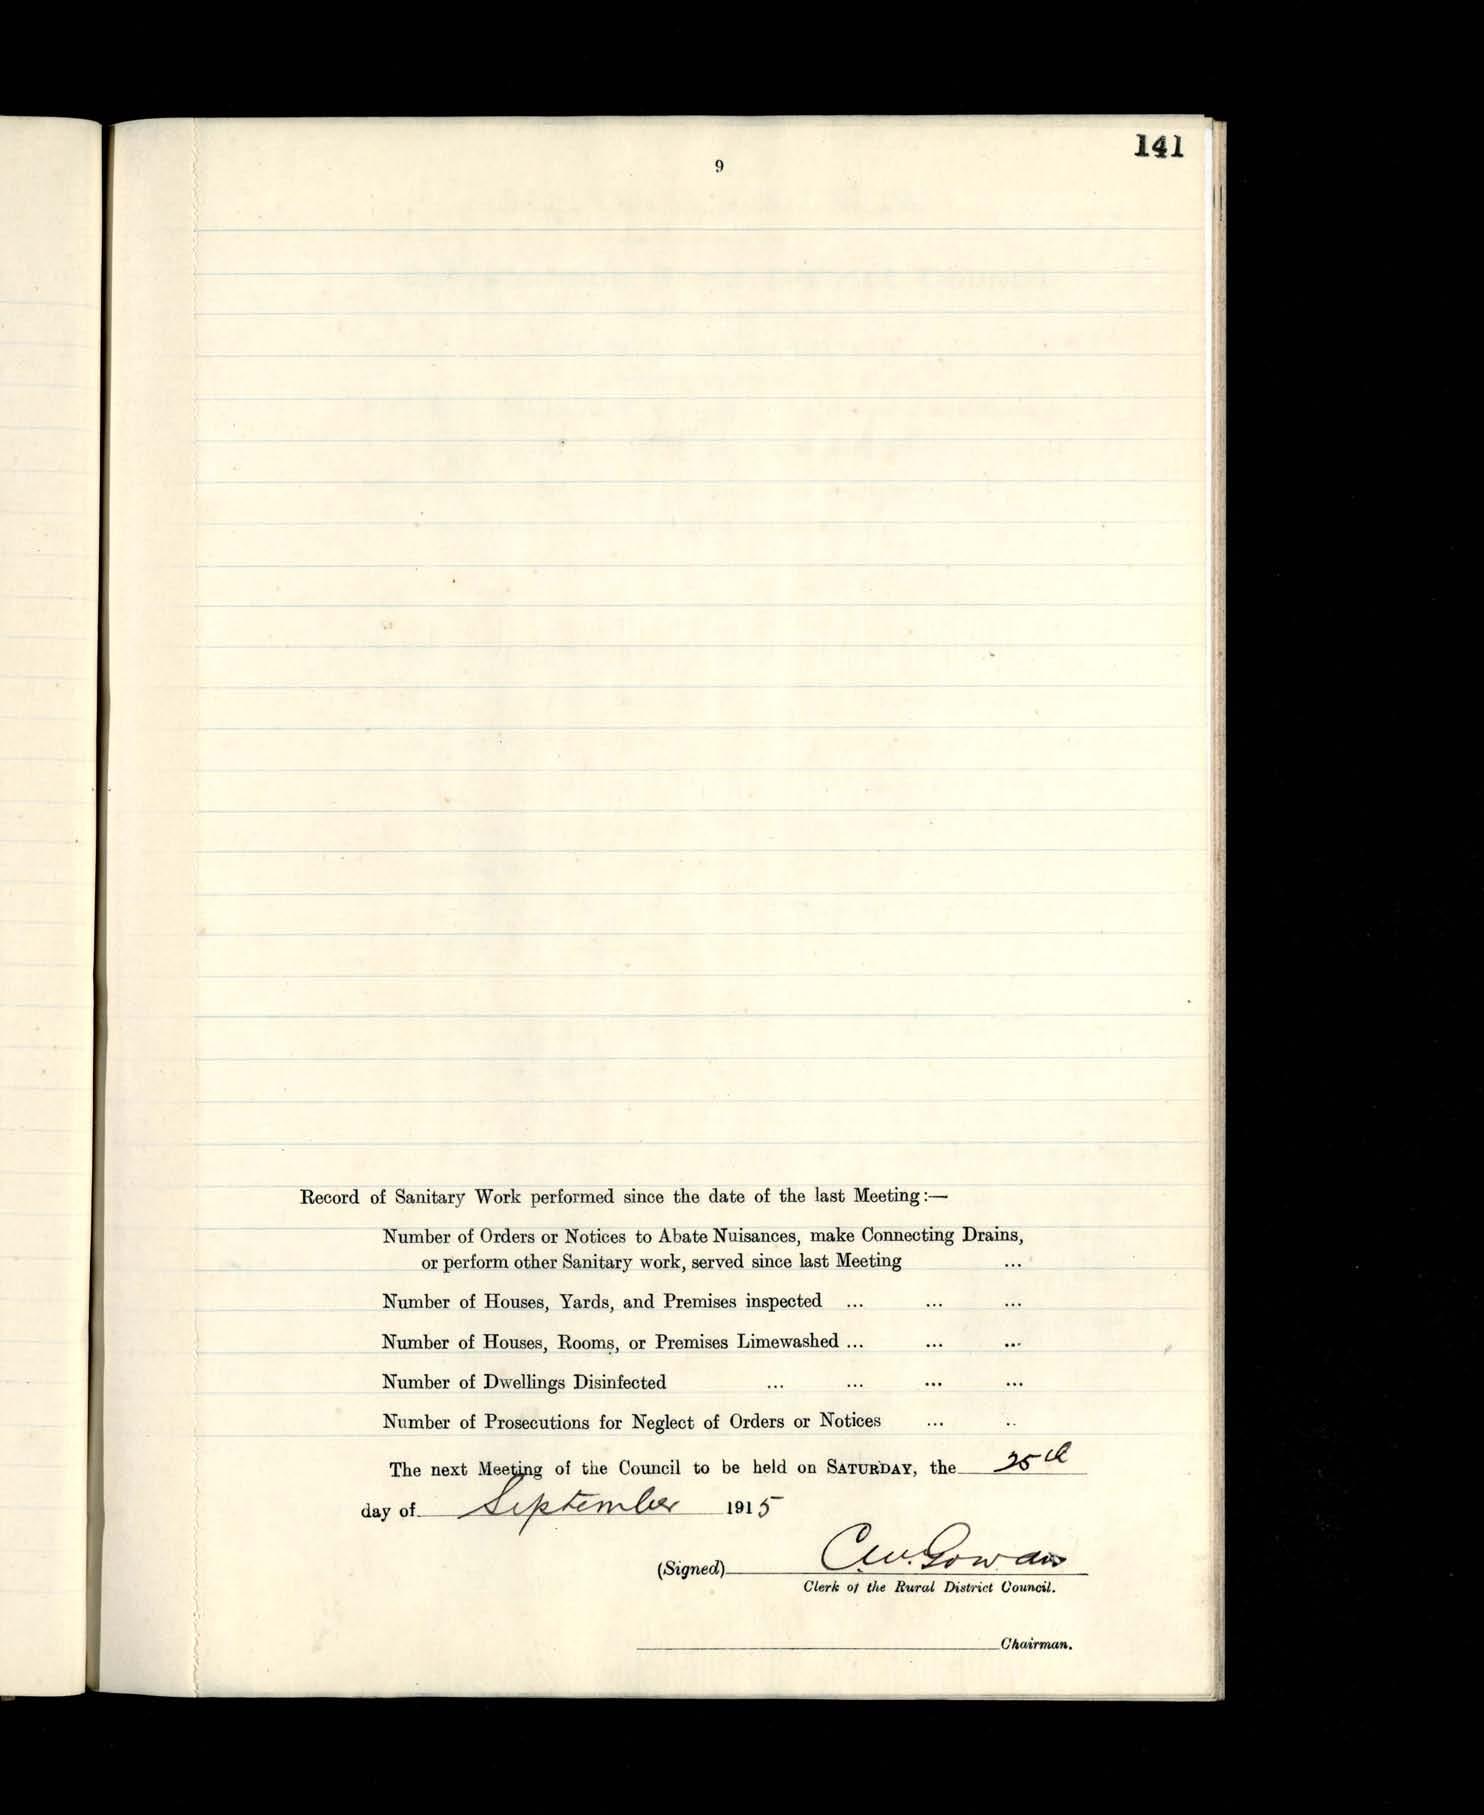 141
9
Record of Sanitary Work performed since the date of the last Meeting:—
Number of Orders or Notices to Abate Nuisances, make Connecting Drains,
or perform other Sanitary work, served since last Meeting ...
Number of Houses, Yards, and Premises inspected ... ... ...
Number of Houses, Rooms, or Premises Limewashed ... ... ...
Number of Dwellings Disinfected ... ... ... ...
Number of Prosecutions for Neglect of Orders or Notices ... ..
The next Meeting of the Council to be held on SATURDAY, the 25th
day of September 1915
(Signed) C.W. Gowan
Clerk of the Rural District Council.
Chairman.